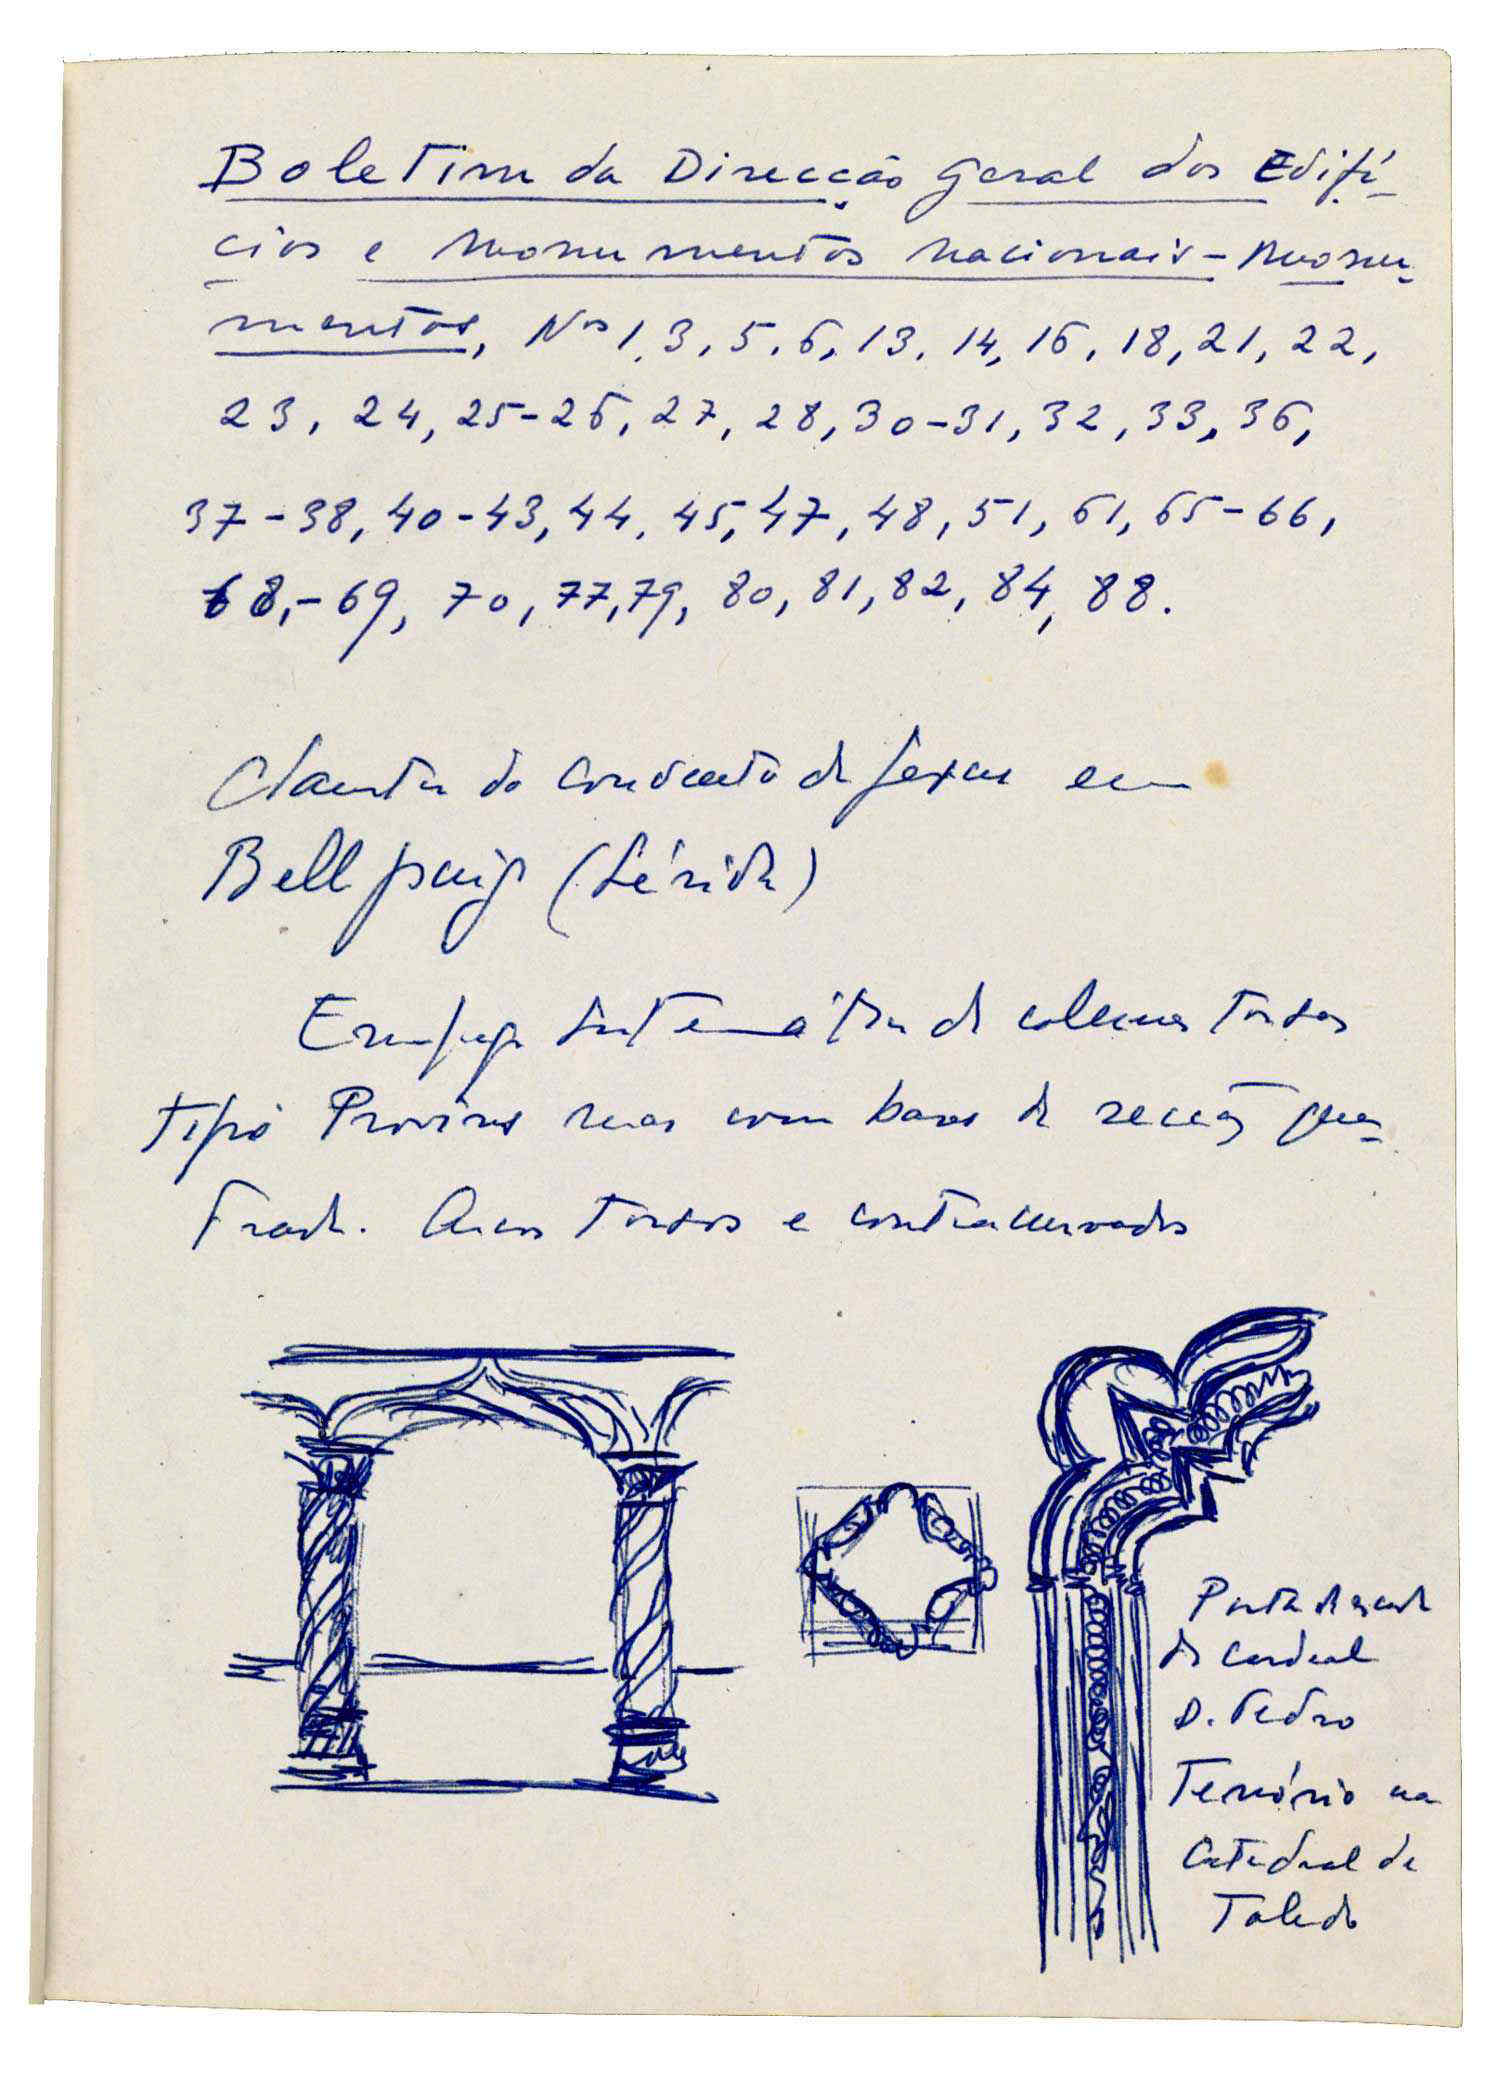 Boletim da Direcção Geral dos Edifí-
cios e Monumentos Nacionais - Monu-
mentos, Nos 1, 3, 5, 6, 13, 14, 16, 18, 21, 22,
23, 24, 25-26, 27, 28, 30-31, 32, 33, 36,
37-38, 40-43, 44, 45, 47, 48, 51, 61, 65-66,
68,-69, 70, 77, 79, 80, 81, 82, 84, 88.
Claustro do Convento de em
Bellpuig (Lérida)
Emprego sistemático de colunas torsas
tipo mas com bases de secção qua-
frada. Arcos torsos e contracurvados
Porta de
do Cardeal
D. Pedro
Tenório na
Catedral de
Toledo